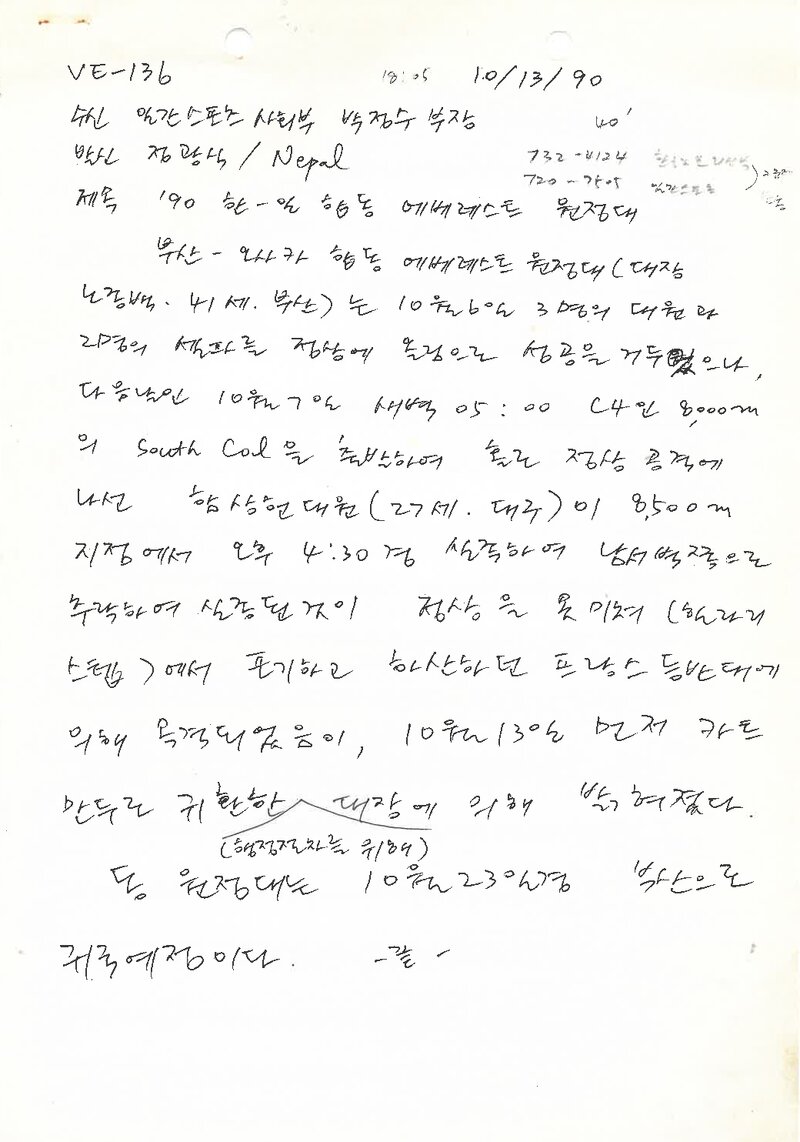 VE-136 18:05 10/13/90
수신 일간스포츠 사회부 박정수 부장 40'
발신 정광식 / Nepal 732-4124
720-7505 일간스포츠
제목 '90 한-일 합동 에베레스트 원정대
부산-오사카 합동 에베레스트 원정대(대장
노정백. 41세. 부산)는 10월 6일 3명의 대원과
2명의 셀파를 정상에 올림으로 성공을 거두었으나,
다음날인 10월 7일 새벽 05:00 C4인 8,000m
의 South Col을 출발하여 홀로 정상 공격에
나선 함상헌대원(27세. 대구)이 8,500m
지점에서 오후 4:30경 실족하여 남서벽쪽으로
추락하여 실종된것이 정상을 못미쳐 (힐라리
스텝)에서 포기하고 하산하던 프랑스 등반대에
의해 목격되었음이, 10월 13일 먼저 카트
만두로 귀환한 대장에 의해 밝혀졌다.
(행정절차를 위해)
동 원정대는 10월 23일경 부산으로
귀국예정이다. -끝-